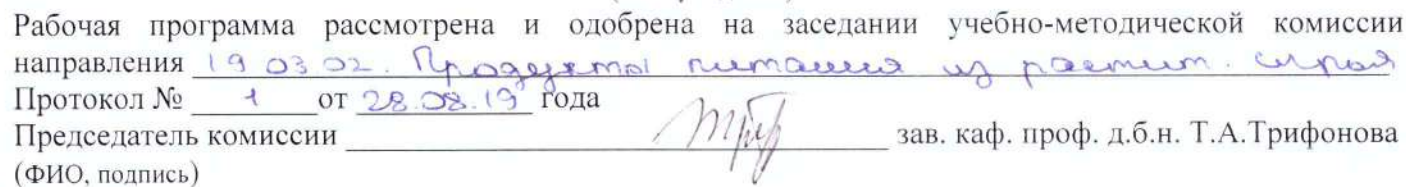 Рабочая программа рассмотрена и одобрена на заседании учебно-методической комиссии
направления 19 03 02. Продукты питания из растит. сырья
Протокол № 1 от 28.08.19 года
Председатель комиссии зав. каф. проф. д.б.н. Т.А.Трифонова
(ФИО, подпись)